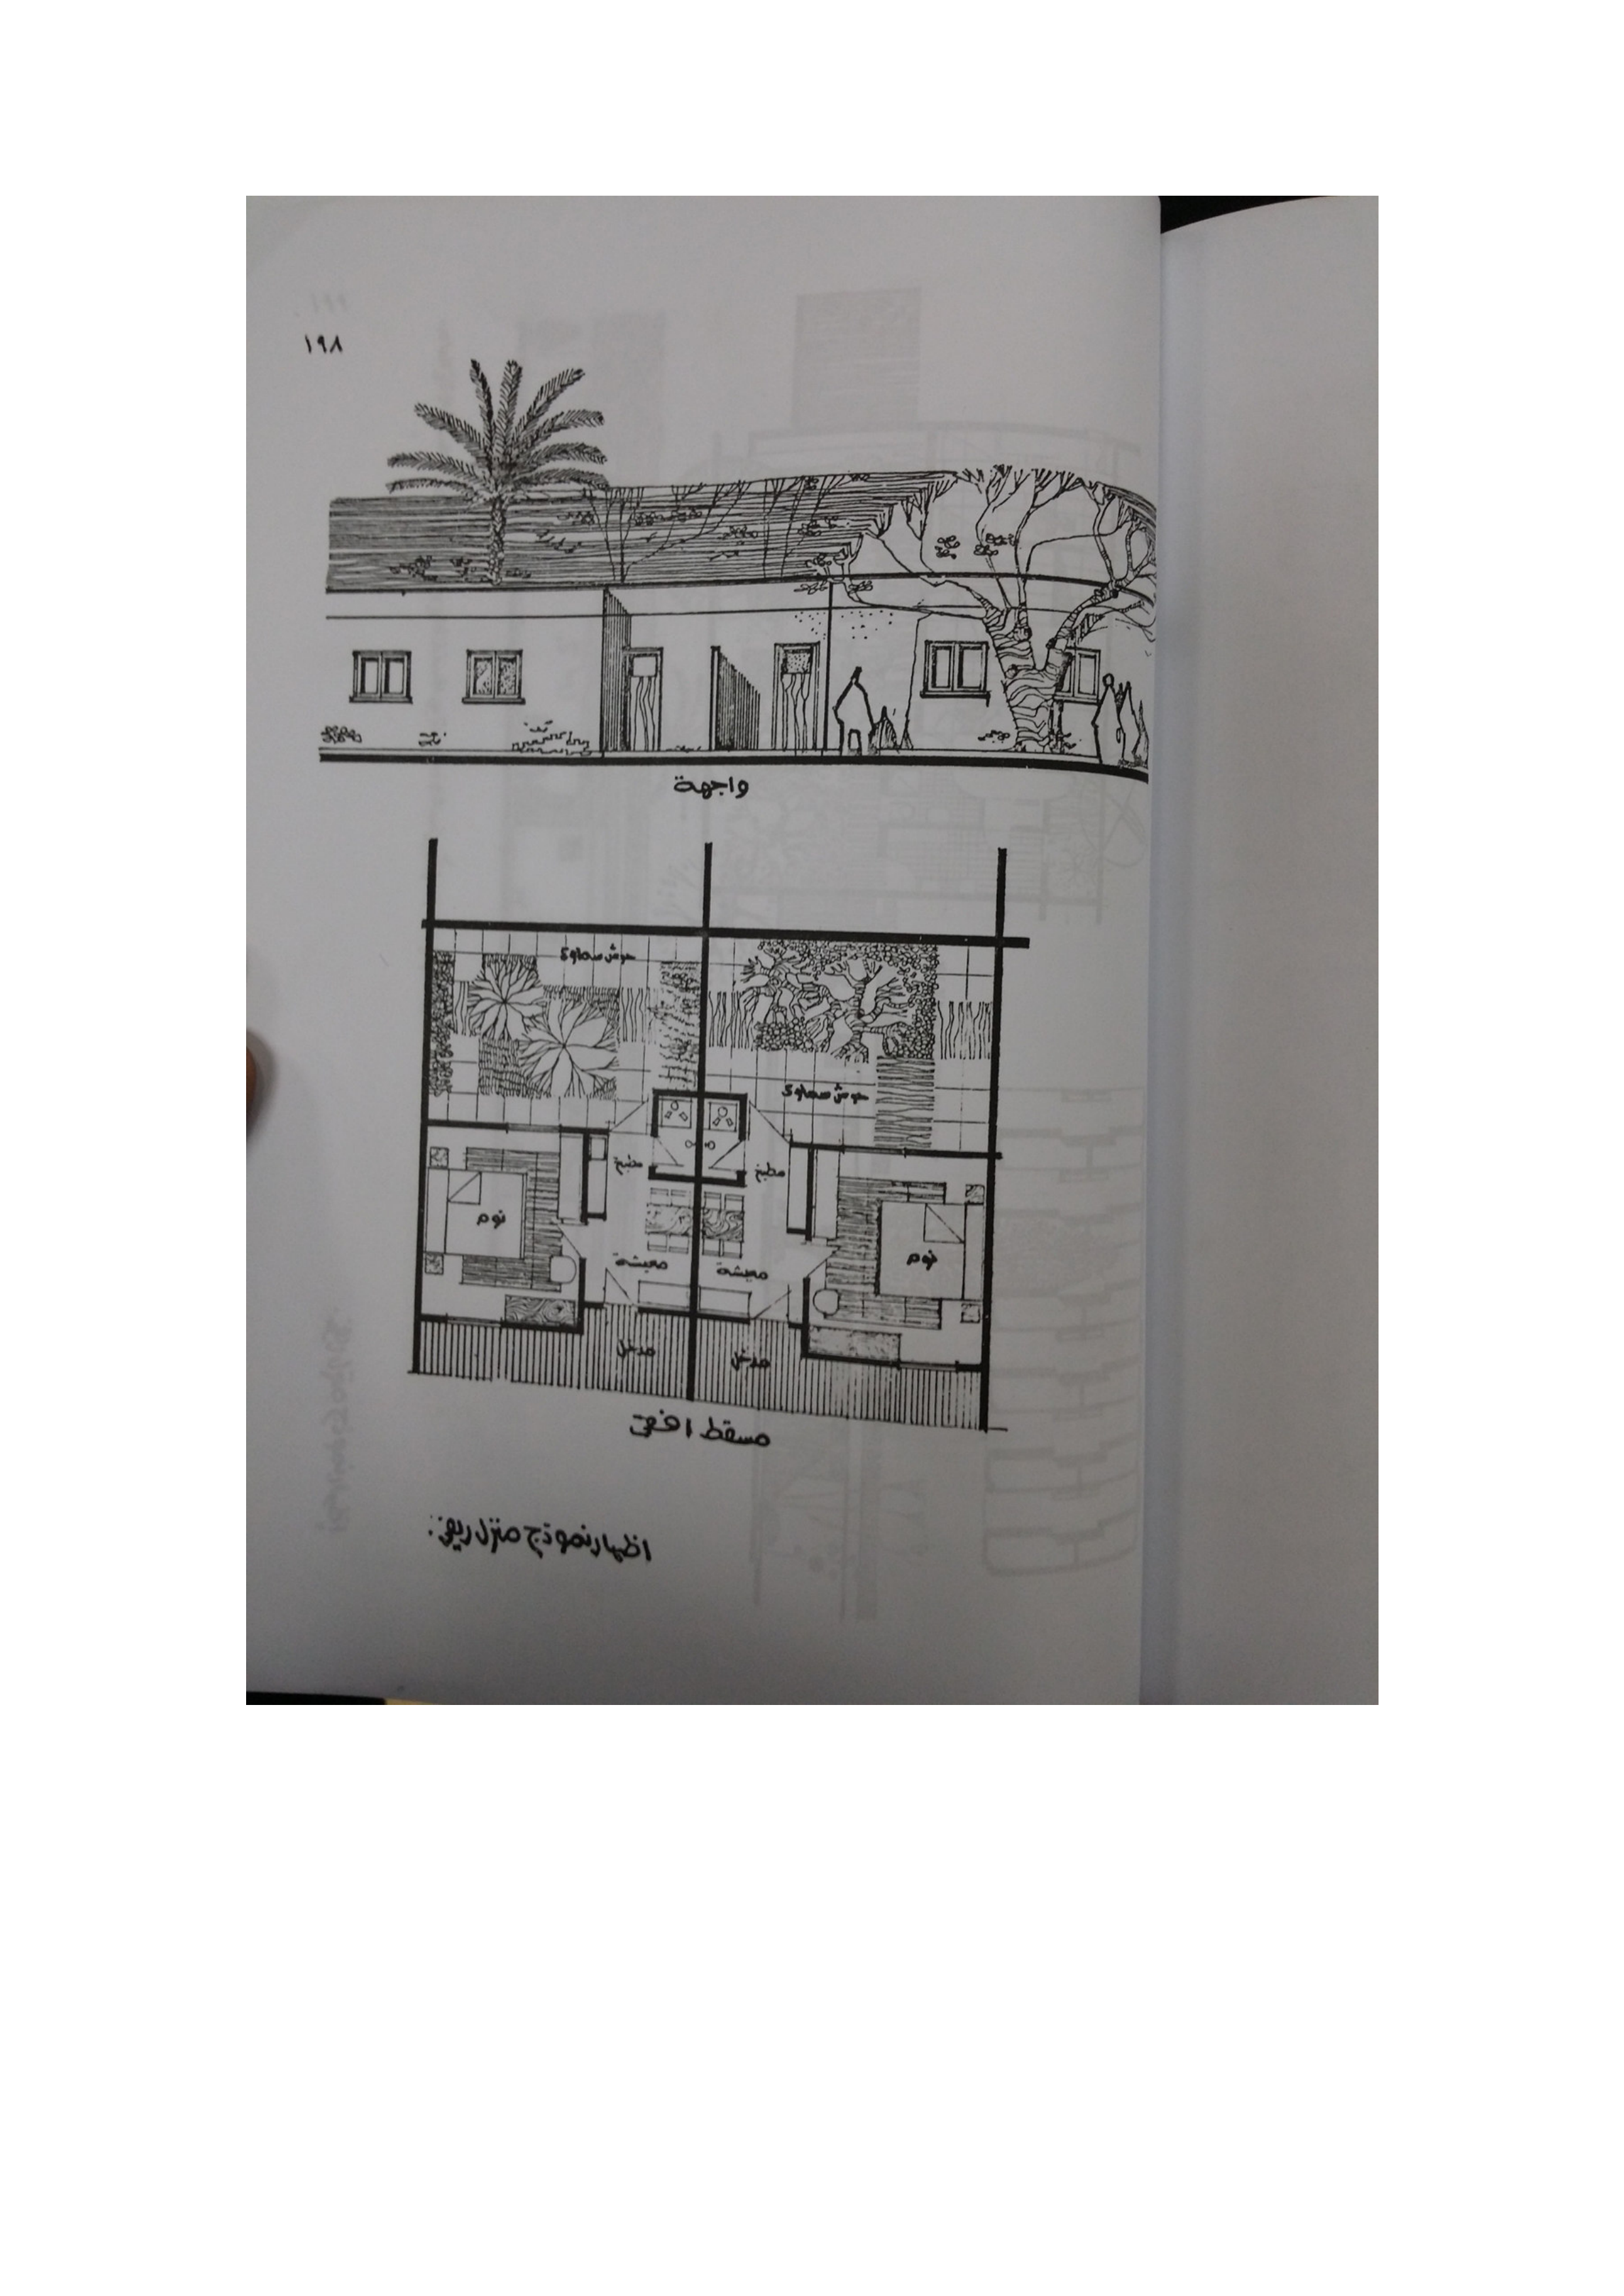 ١٩٨
واجهة
حوش سماوى
حوش سماوى
مطبخ
مطبخ
نوم
نوم
معيشة
معيشة
مدخل
مدخل
مسقط افقى
اظهار نموذج منزل ريفى :